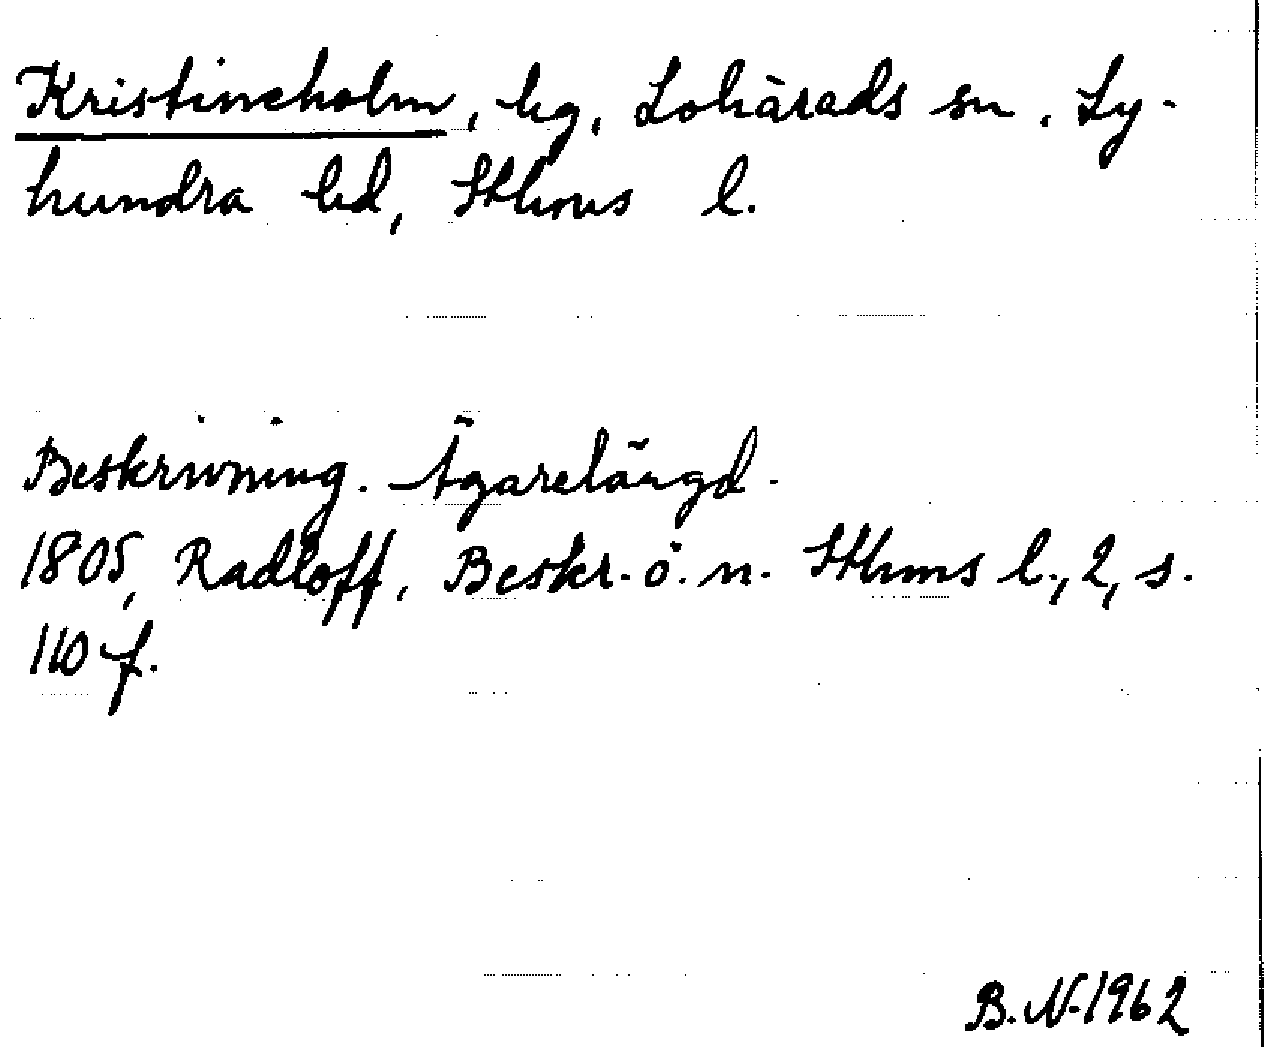 Kristineholm, hg, Lohärads sn. Ly-
hundra hd, Sthms l.
Beskrivning. Ägarelängd.
1805, Radloff, Beskr. ö. n. Sthms l., 2, s.
110 f.
B. N. 1962